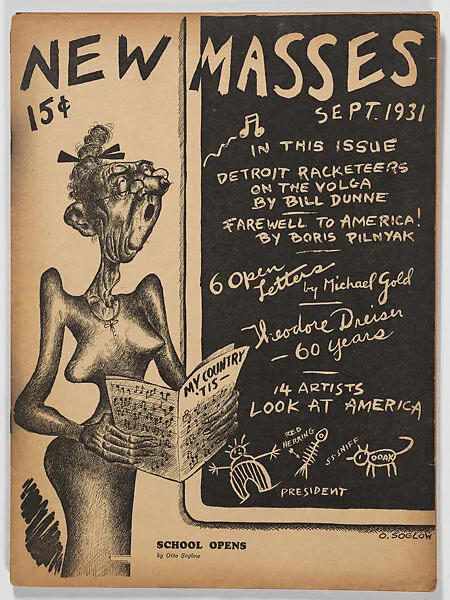 NEW MASSES
15¢
SEPT. 1931
IN THIS ISSUE
DETROIT RACKETEERS
ON THE VOLGA
BY BILL DUNNE
FAREWELL TO AMERICA!
BY BORIS PILNYAK
6 Open
Letters by Michael Gold
Theodore Dreiser
— 60 Years
14 ARTISTS
LOOK AT AMERICA
MY COUNTRY
'TIS—
RED
HERRING
S-S-SNIFF
PRESIDENT
O. SOGLOW
SCHOOL OPENS
by Otto Soglow